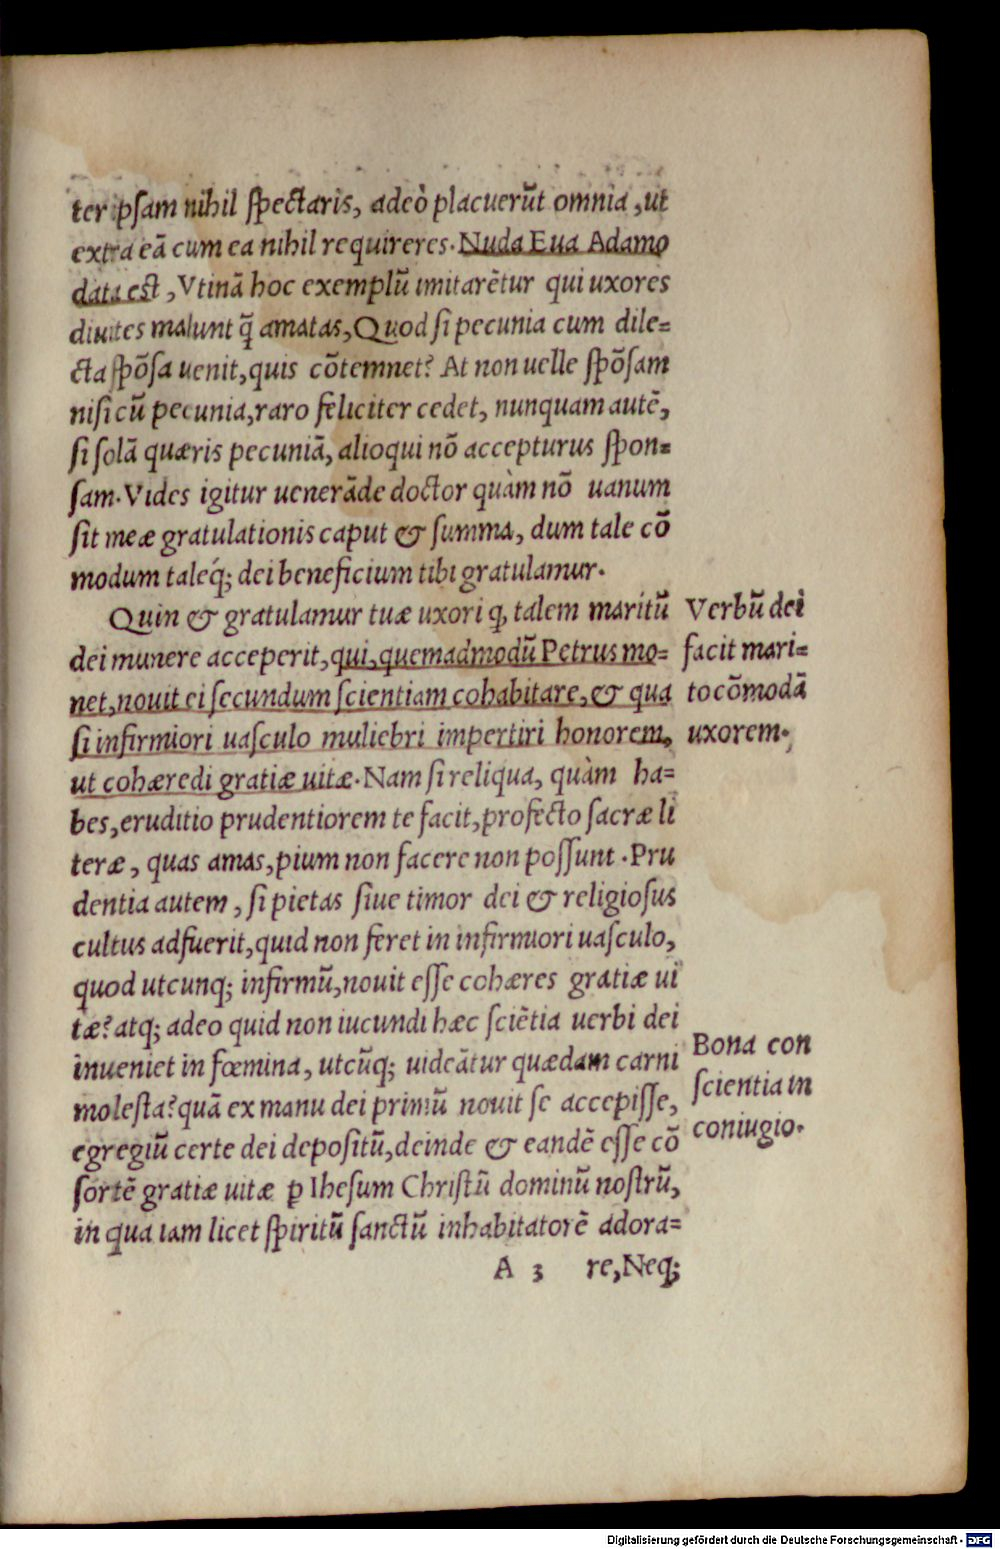 ter ꝑsam nihil spectaris, adeò placuerūt omnia, ut
extra eā cum ea nihil requireres. Nuda Eua Adamo
data est, Vtinā hoc exemplū imitarētur qui uxores
diuites malunt q̄ amatas, Quod si pecunia cum dile=
cta spōsa uenit, quis cōtemnet? At non uelle spōsam
nisi cū pecunia, raro feliciter cedet, nunquam autē,
si solā quæris pecuniā, alioqui nō accepturus spon=
sam. Vides igitur uenerāde doctor quàm nō uanum
sit meæ gratulationis caput & summa, dum tale cō
modum taleq́; dei beneficium tibi gratulamur.
Quin & gratulamur tuæ uxori q, talem maritū
dei munere acceperit, qui, quemadmodū Petrus mo=
net, nouit ei secundum scientiam cohabitare, & qua
si infirmiori uasculo muliebri impertiri honorem,
ut cohæredi gratiæ uitæ. Nam si reliqua, quàm ha=
bes, eruditio prudentiorem te facit, profecto sacræ li
teræ, quas amas, pium non facere non possunt. Pru
dentia autem, si pietas siue timor dei & religiosus
cultus adfuerit, quid non feret in infirmiori uasculo,
quod utcunq; infirmū, nouit esse cohæres gratiæ ui
tæ? atq; adeo quid non iucundi hæc sciētia uerbi dei
inueniet in fœmina, utcūq; uideātur quædam carni
molesta? quā ex manu dei primū nouit se accepisse,
egregiū certe dei depositū, deinde & eandē esse cō
sortē gratiæ uitæ ꝑ Ihesum Christū dominū nostrū,
in qua iam licet spiritū sanctū inhabitatorē adora=
A 3 re, Neq;
Verbū dei
facit mari=
to cōmodā
uxorem.
Bona con
scientia in
coniugio.
Digitalisierung gefördert durch die Deutsche Forschungsgemeinschaft - DFG